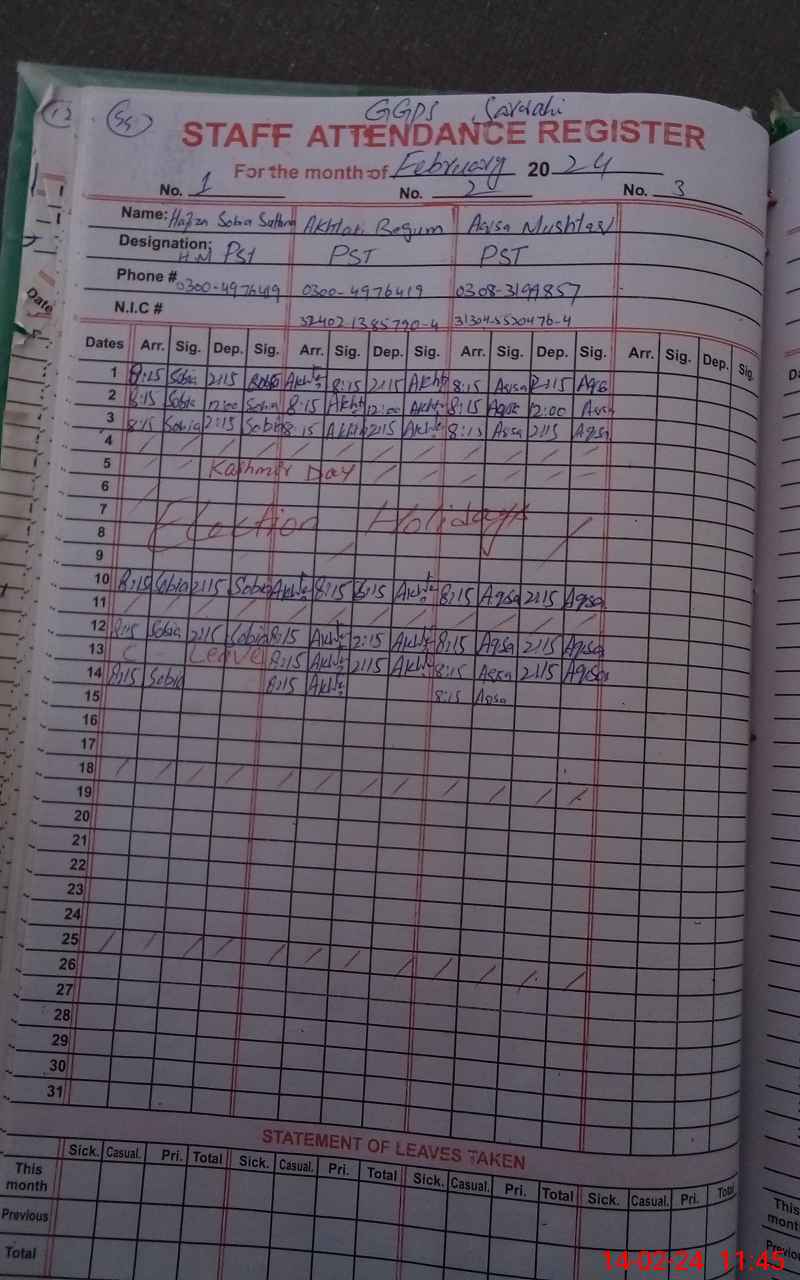 GGPS Sardahi
STAFF ATTENDANCE REGISTER
For the month of February 20 24
No. 1 No. 2 No. 3
Name: Hafiza Sobia Sattar Akhtari Begum Aqsa Mushtaq
Designation: H.M PST PST PST
Phone # 0300-4976419 0300-4976419 0308-3199857
N.I.C # 31304-5530476-4
Dates Arr. Sig. Dep. Sig. Arr. Sig. Dep. Sig. Arr. Sig. Dep. Sig. Arr. Sig. Dep. Sig.
1 8:15 Sobia 2:15 Sobia Akht 8:15 2:15 Akht 8:15 Aqsa 2:15 Aqsa
2 8:15 Sobia 12:00 Sobia 8:15 Akht 12:00 Akht 8:15 Aqsa 12:00 Aqsa
3 8:15 Sobia 2:15 Sobia 8:15 Akht 2:15 Akht 8:15 Aqsa 2:15 Aqsa
4
5 Kashmir Day
6
7 Election Holidays
8
9
10 8:15 Sobia 2:15 Sobia Akht 8:15 Akht 8:15 Aqsa 2:15 Aqsa
11
12 8:15 Sobia 2:15 Sobia 8:15 Akht 2:15 Akht 8:15 Aqsa 2:15 Aqsa
13 C Leave 8:15 Akht 2:15 Akht 8:15 Aqsa 2:15 Aqsa
14 8:15 Sobia 8:15 Akht 8:15 Aqsa
15
16
17
18
19
20
21
22
23
24
25
26
27
28
29
30
31
STATEMENT OF LEAVES TAKEN
Sick. Casual. Pri. Total Sick. Casual. Pri. Total Sick. Casual. Pri. Total Sick. Casual. Pri. Total
This month
Previous
Total
14-02-24 11:45